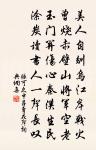 美人自刎烏江岸戰火
曾燒赤壁山將軍空老
玉門關傷心秦漢生民
塗炭讀書人一聲長嘆